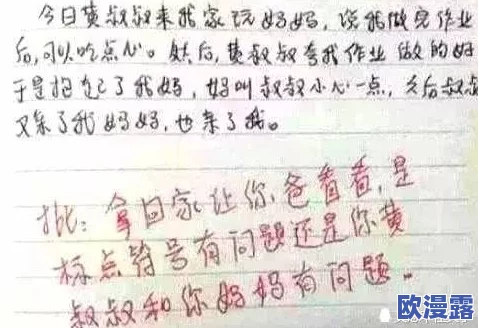 今日黄叔叔来我家玩妈妈，说我做完作业
后，可以吃点心。然后，黄叔叔夸我作业做的好
于是抱起了我妈，妈叫叔叔小心一点，之后叔叔
又亲了我妈妈，也亲了我。
批：拿回家让你爸看看，是
标点符号有问题还是你黄
叔叔和你妈妈有问题。
欧漫露